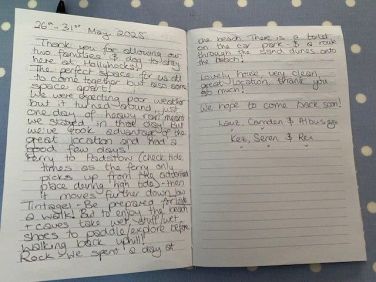 26th - 31st May 2025
Thank you for allowing our
two families & dog to stay
here at Hollyhocks!
The perfect space for us all
to come together but also some
space apart!
We were expecting poor weather
but it turned around just
one day of heavy rain meant
we stayed in that day but
we've took advantage of the
great location and had a
good few days!
Ferry to Padstow (check tide
times as the ferry only
picks up from the
place during high tide - then
it moves further down
Tintagel - Be prepared for
a walk! But to enjoy the beach
+ caves take wet stuff/wet
shoes to paddle/explore before
walking back uphill!
Rock - We spent a day at
the beach There is a toilet
on the car park & a
through the sand dunes onto
the beach!
Lovely house, very clean,
great location. thank you
so much!
We hope to come back soon!
Love Camden & Albus
Seren & Rex